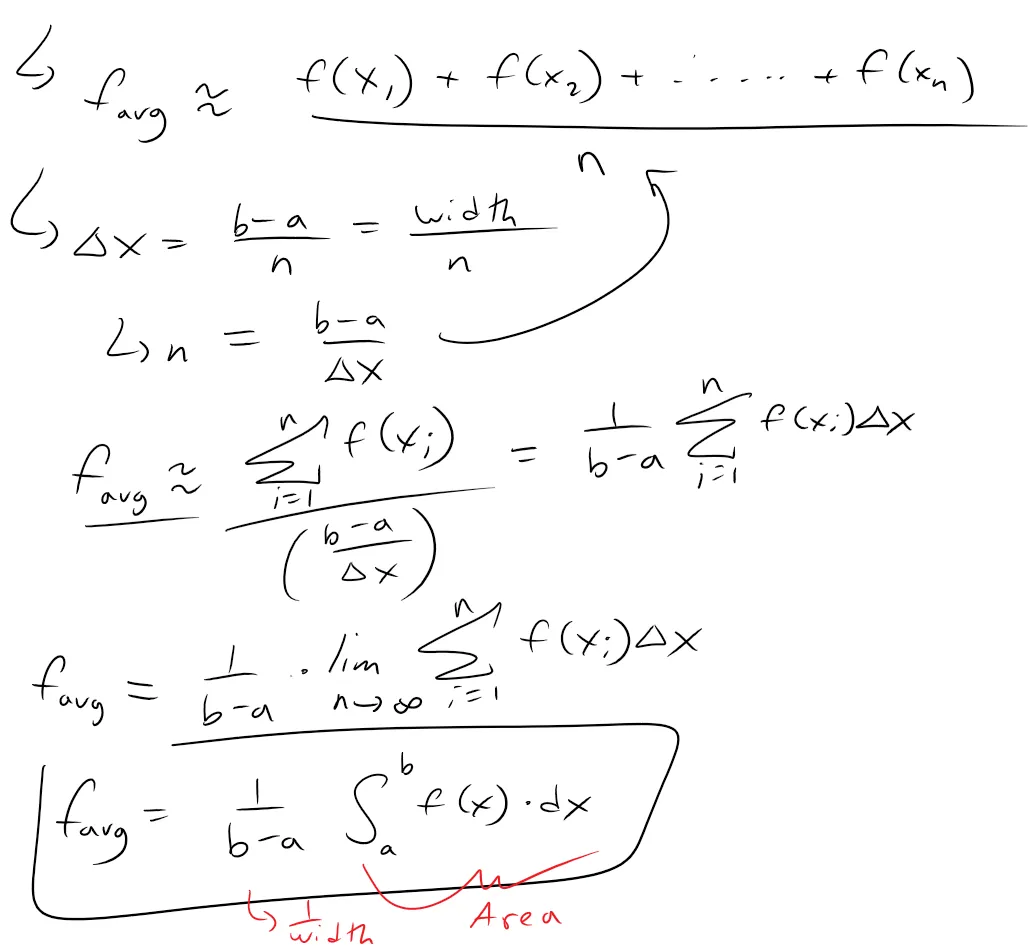 ↳ f_avg ≈ (f(x₁) + f(x₂) + ...... + f(xₙ)) / n
↳ Δx = (b-a)/n = width/n
↳ n = (b-a)/Δx
f_avg ≈ (∑_{i=1}^{n} f(x_i)) / ((b-a)/Δx) = 1/(b-a) ∑_{i=1}^{n} f(x_i)Δx
f_avg = 1/(b-a) · lim_{n→∞} ∑_{i=1}^{n} f(x_i)Δx
f_avg = 1/(b-a) ∫_a^b f(x)·dx
↳ 1/width Area